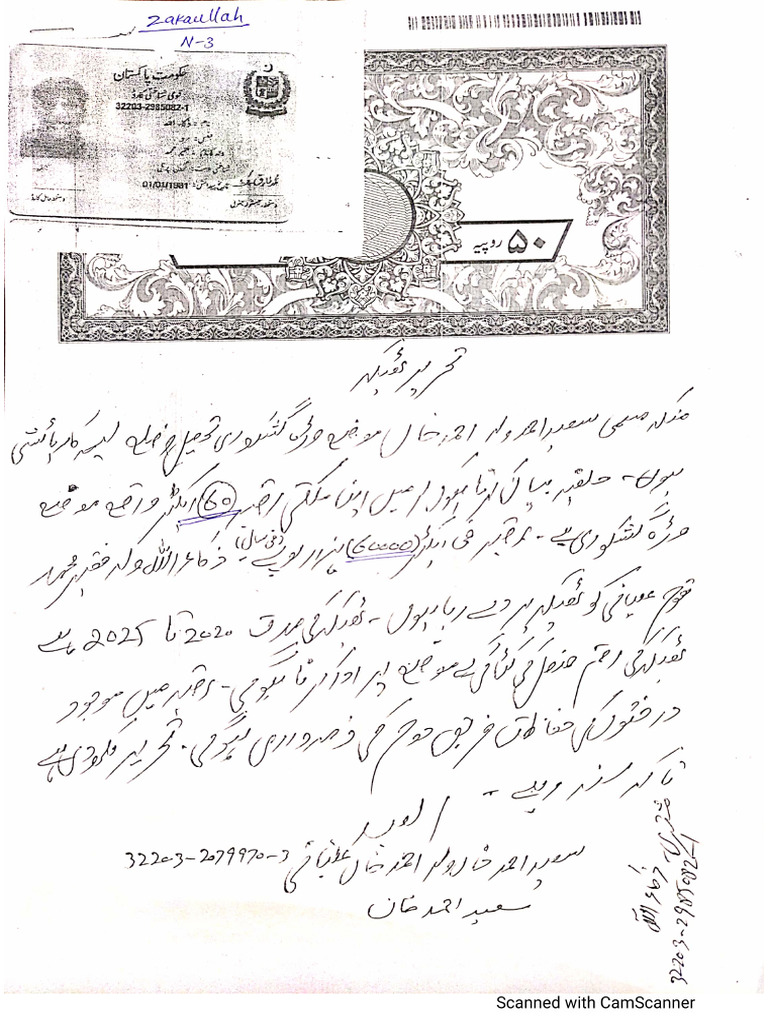 Zakaullah
N-3
حکومت پاکستان
قومی شناختی کارڈ
32203-2985082-1
نام : ذکاء اللہ
جنس : مرد
تاریخ پیدائش : 01/01/1981
۵۰ روپیہ
تحریر ٹھیکہ
منکہ مسمی سعید احمد ولد احمد خان موضع وڑہ گشکوری تحصیل و ضلع لیہ کا رہائشی
ہوں - حلفیہ بیان کرتا ہوں میں اپنی ملکیتی رقبہ (60) ایکڑ واقع موضع
وڑہ گشکوری ہے - رقبہ فی ایکڑ (60000) ہزار روپے (فی سال) - ذکاء اللہ ولد فقیر محمد
قوم کو ٹھیکہ پر دے رہا ہوں - ٹھیکہ کی مدت 2020 تا 2025 ہے
ٹھیکہ کی رقم فصل کی کٹائی کے موقع پر ادا کرنا ہوگی - رقبہ میں موجود
درختوں کی حفاظت فریق دوم کی ذمہ داری ہوگی - تحریر لکھ دی ہے
تاکہ سند رہے -
العبد
سعید احمد خان ولد احمد خان 32203-2079970-3
سعید احمد خان
ذکاء اللہ
32203-2985082-1
Scanned with CamScanner